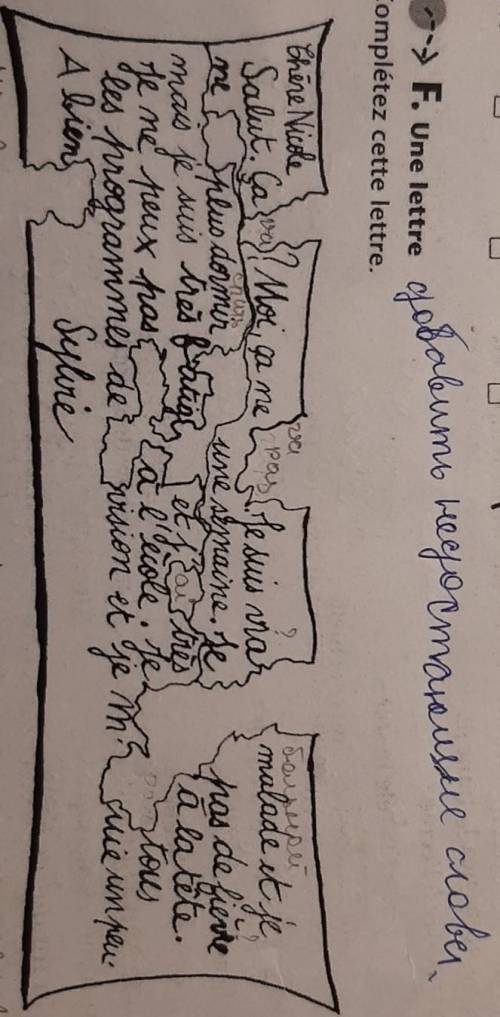 F. Une lettre добавить недостающие слова.
Complétez cette lettre.
Chère Nicole
Salut. Ça va? Moi, ça ne va pas. Je suis vrai malade et je
ne plus dormir une semaine. Je pas de fièvre
mais je suis très fatig et j'ai très à la tête.
Je ne peux pas à l'école. Je tous
les programmes de vision et je m' uie un peu
A bien
Sylvie